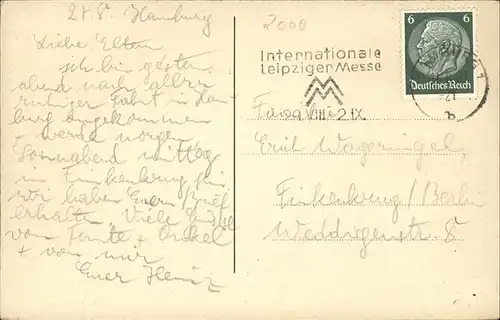 27.8. Hamburg
Liebe Eltern
ich bin gestern
abend nach aller
ruhiger Fahrt in Ham
burg angekommen
+ werde morgen
Sonnabend mittag
in Finkenkrug sein
wir haben Euern Brief
erhalten. Viele Grüße
von Tante + Onkel
+ von mir
Euer Heinz
2000
Internationale
Leipziger Messe
MM
VIII-2.IX.
6 6
Deutsches Reich
21
b
Erich
Finkenkrug/Berlin
Weddigenstr. 8